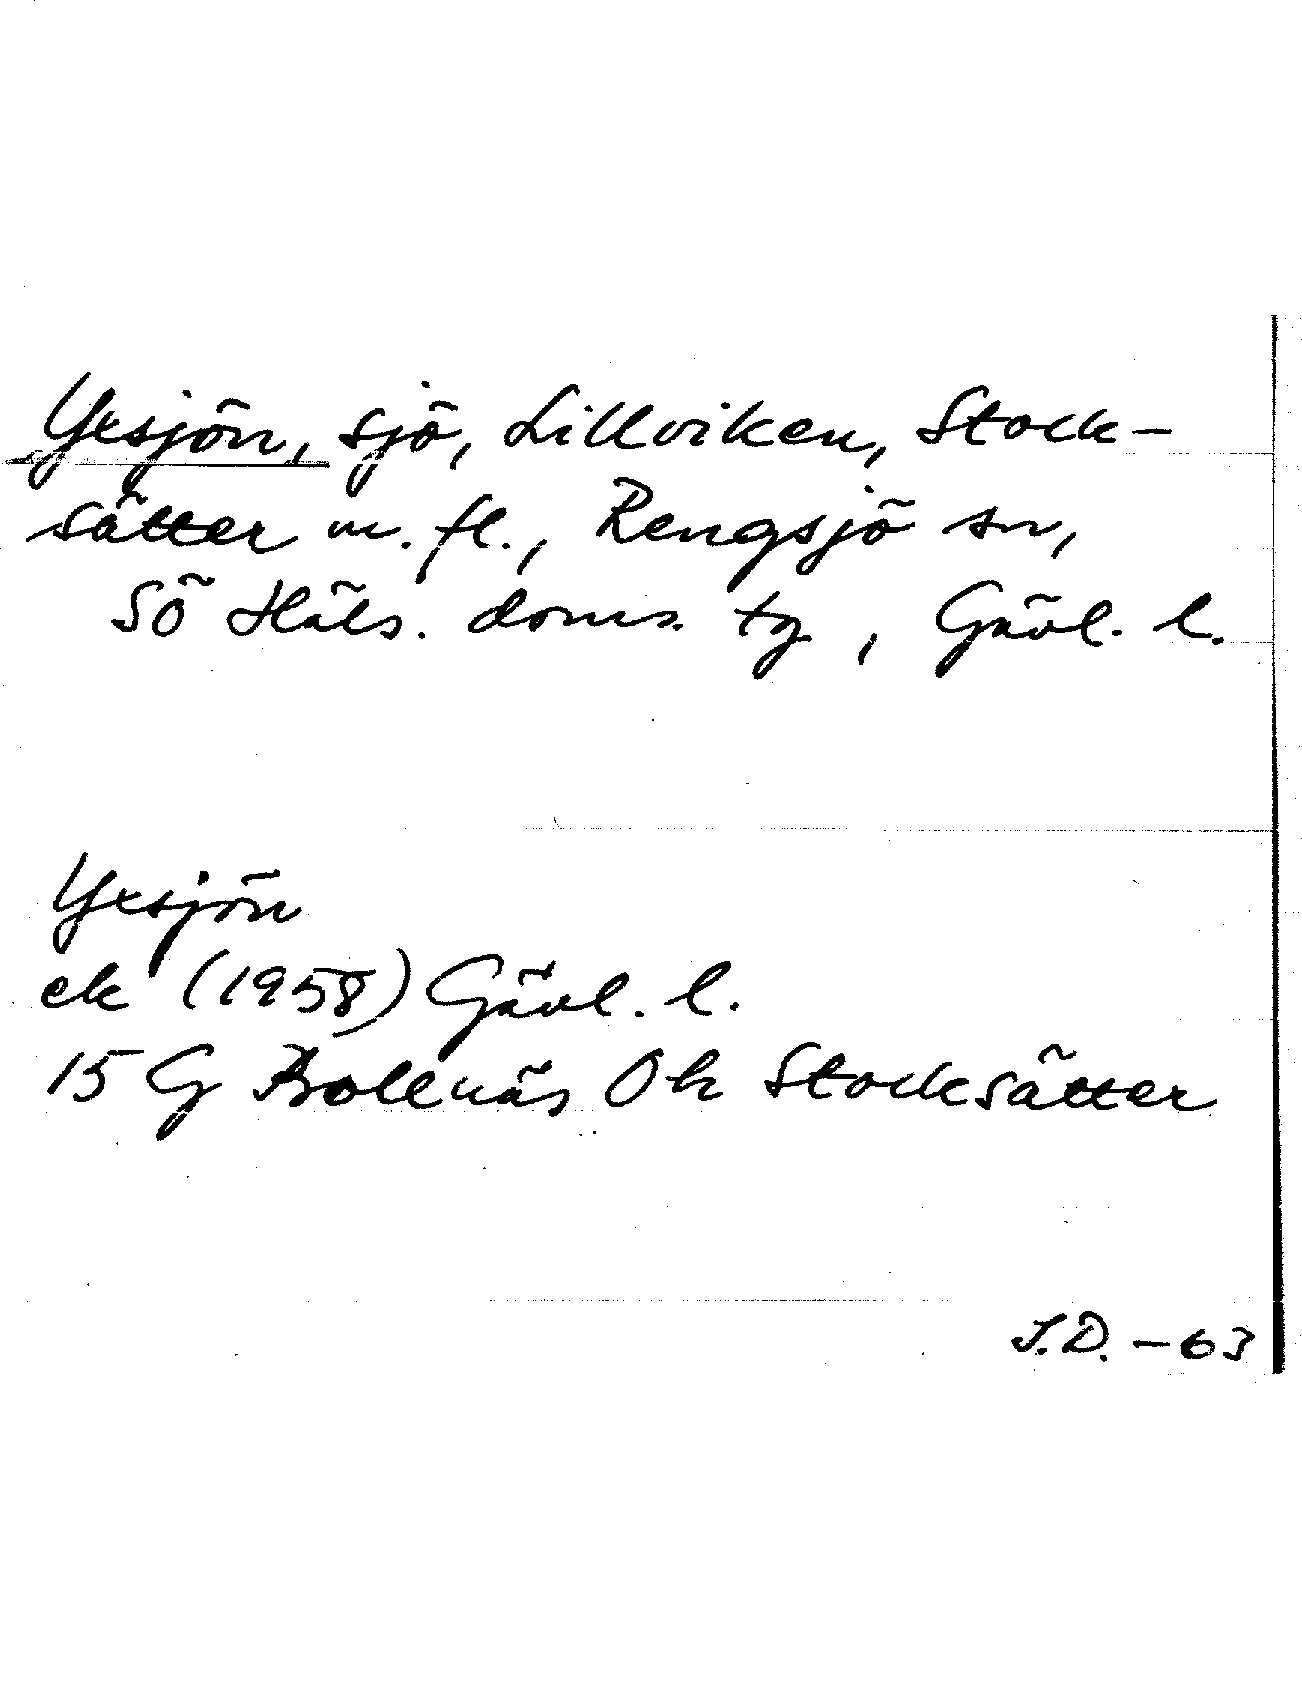 Yxsjön, sjö, Lillviken, Stock-
sätter m. fl., Rengsjö sn,
SÖ Häls. doms. tg, Gävl. l.
Yxsjön
ek (1958) Gävl. l.
15 G Bollnäs Oh Stocksätter
J.D. -63